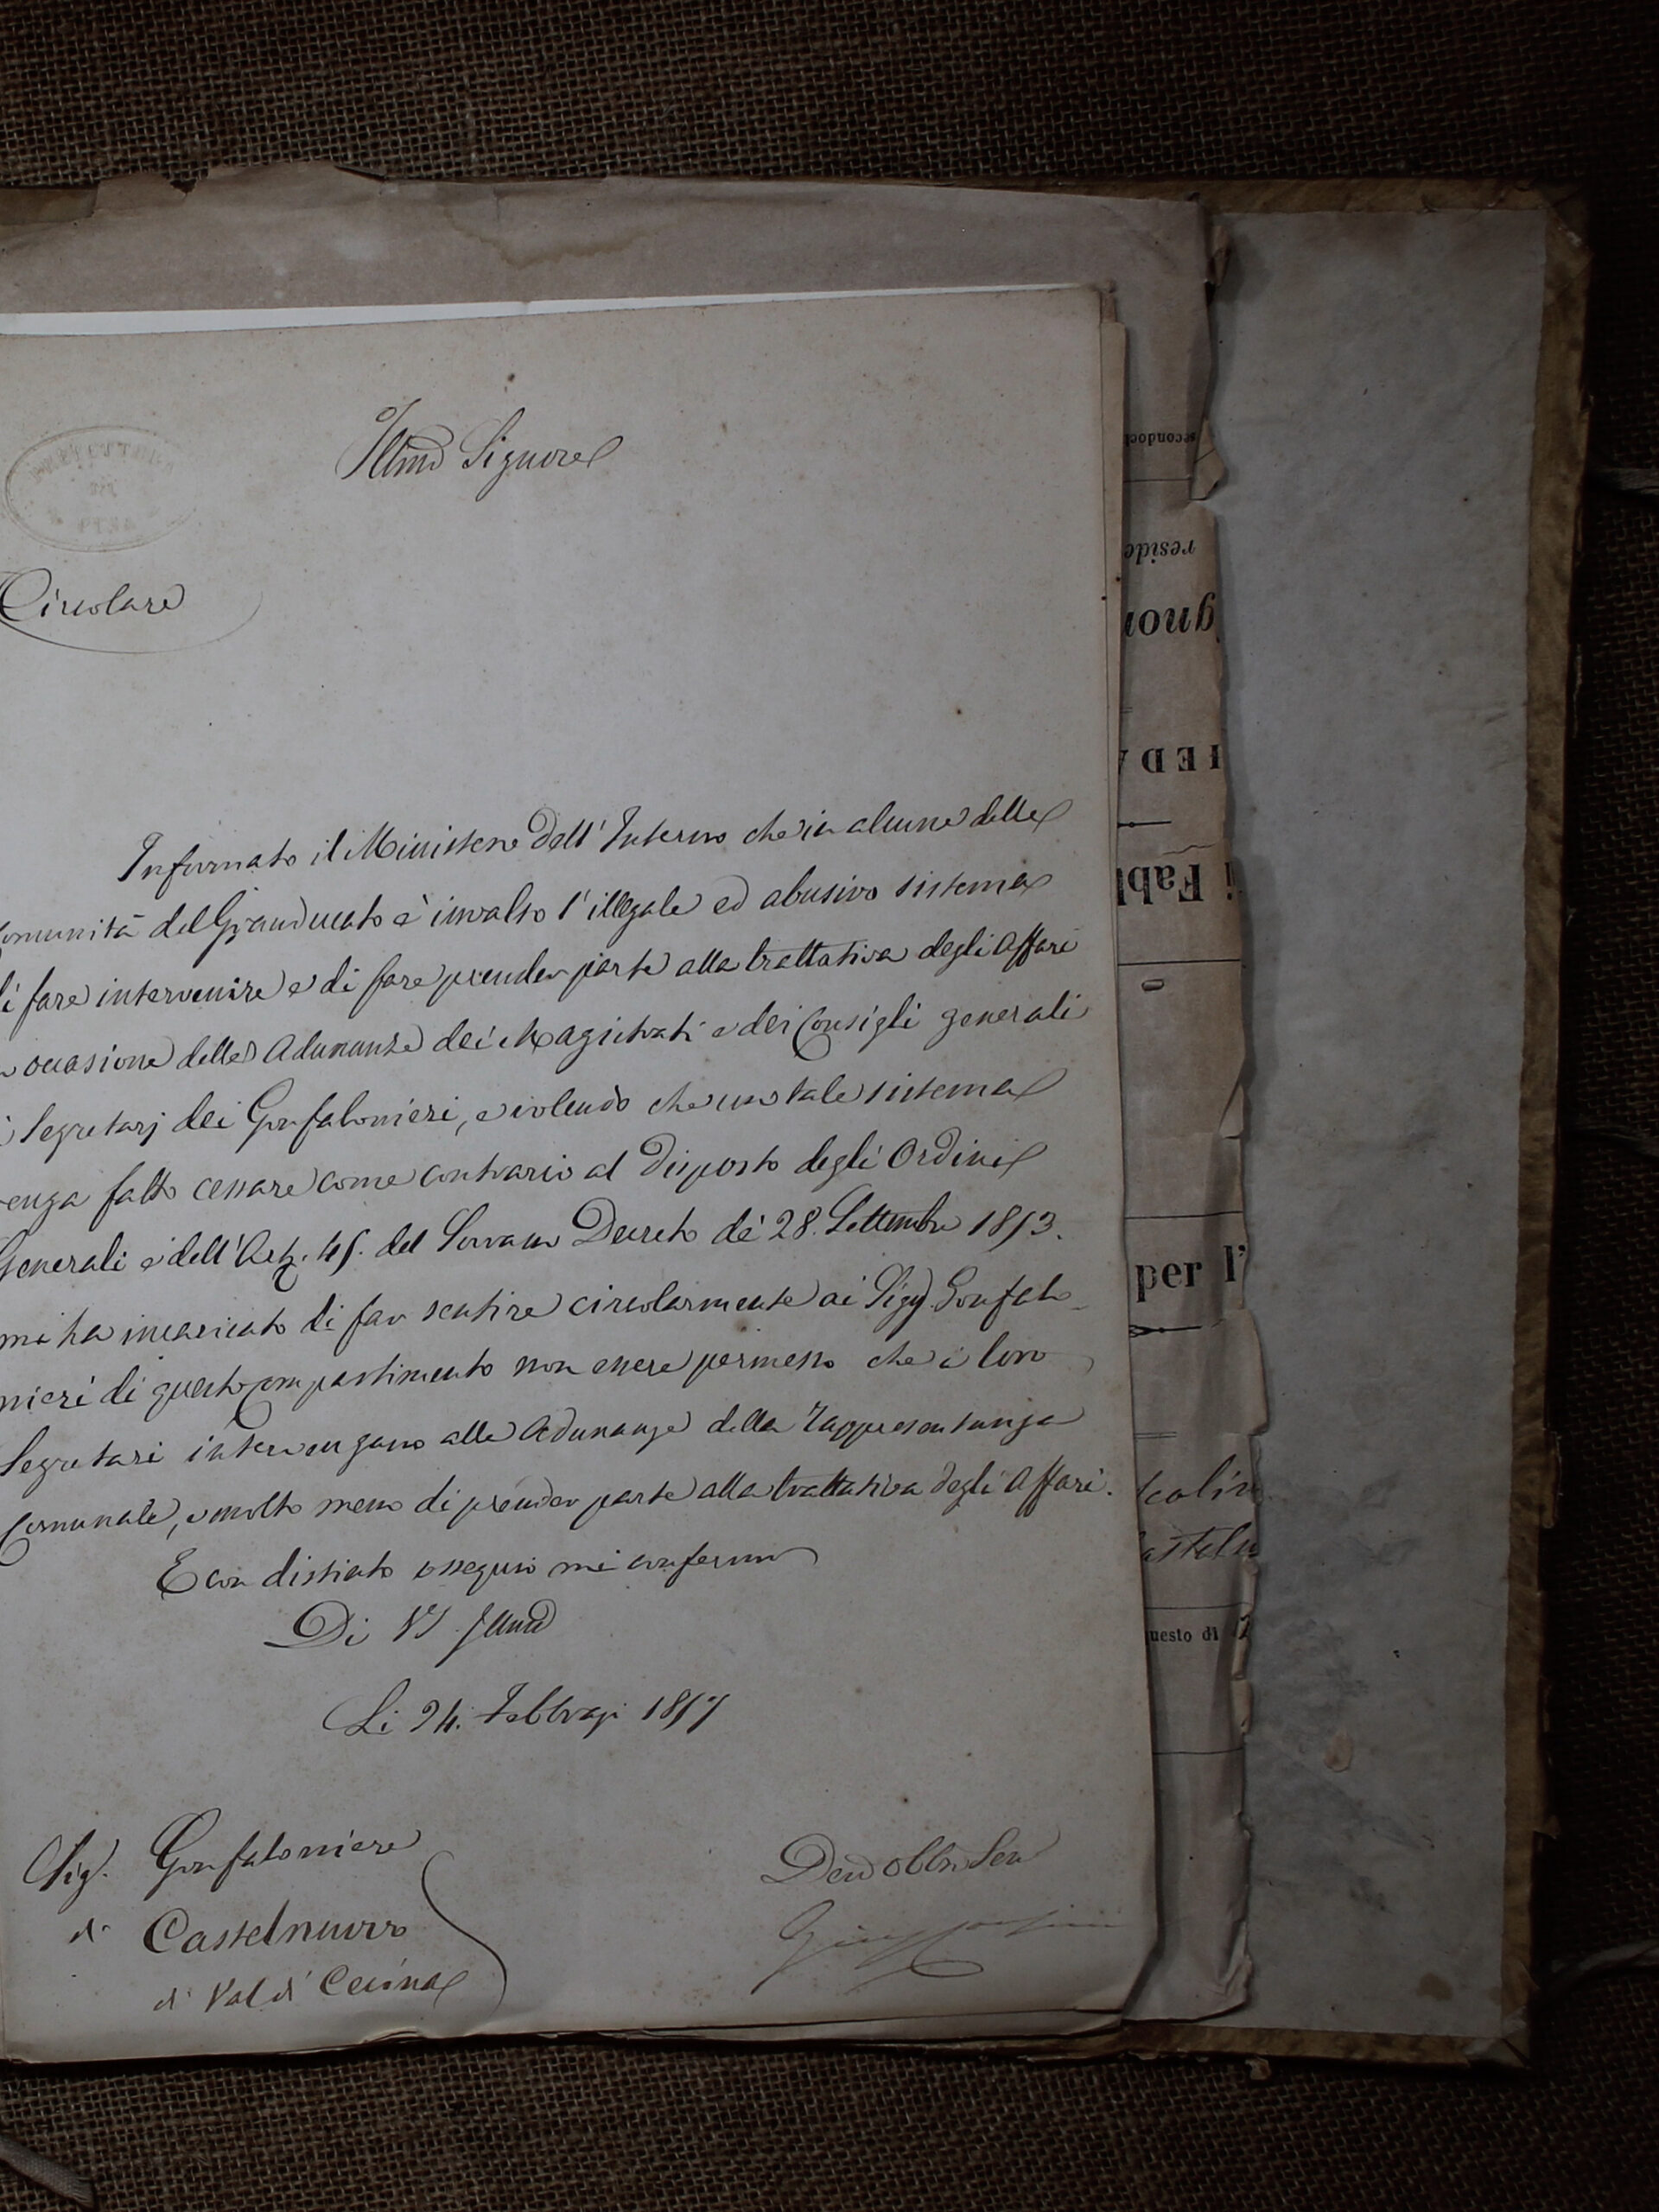 PREFETTURA
DI
PISA
Illmo Signore
Circolare
Informato il Ministero dell'Interno che in alcune delle
Comunità del Granducato è invalso l'illegale ed abusivo sistema
di fare intervenire e di fare prender parte alla trattativa degli Affari
occasione delle Adunanze dei Magistrati e dei Consigli generali
i Segretarj dei Gonfalonieri, e volendo che un tale sistema
venga fatto cessare come contrario al disposto degli Ordini
Generali e dell'Art. 45. del Sovrano Decreto de' 28. Settembre 1853.
mi ha incaricato di far sentire circolarmente ai Sigg. Gonfalo-
nieri di questo Compartimento non essere permesso che i loro
Segretari intervengano alle Adunanze della rappresentanza
Comunale, e molto meno di prender parte alla trattativa degli Affari.
E con distinto ossequio mi confermo
Di VS Illma
Li 24. Febbrajo 1857
Sig. Gonfaloniere
di Castelnuovo
di Val di Cecina
Devo Obbl Serv
secondoch
reside
gnor
IED
i Fabb
per l'
scolin
asteln
uesto di